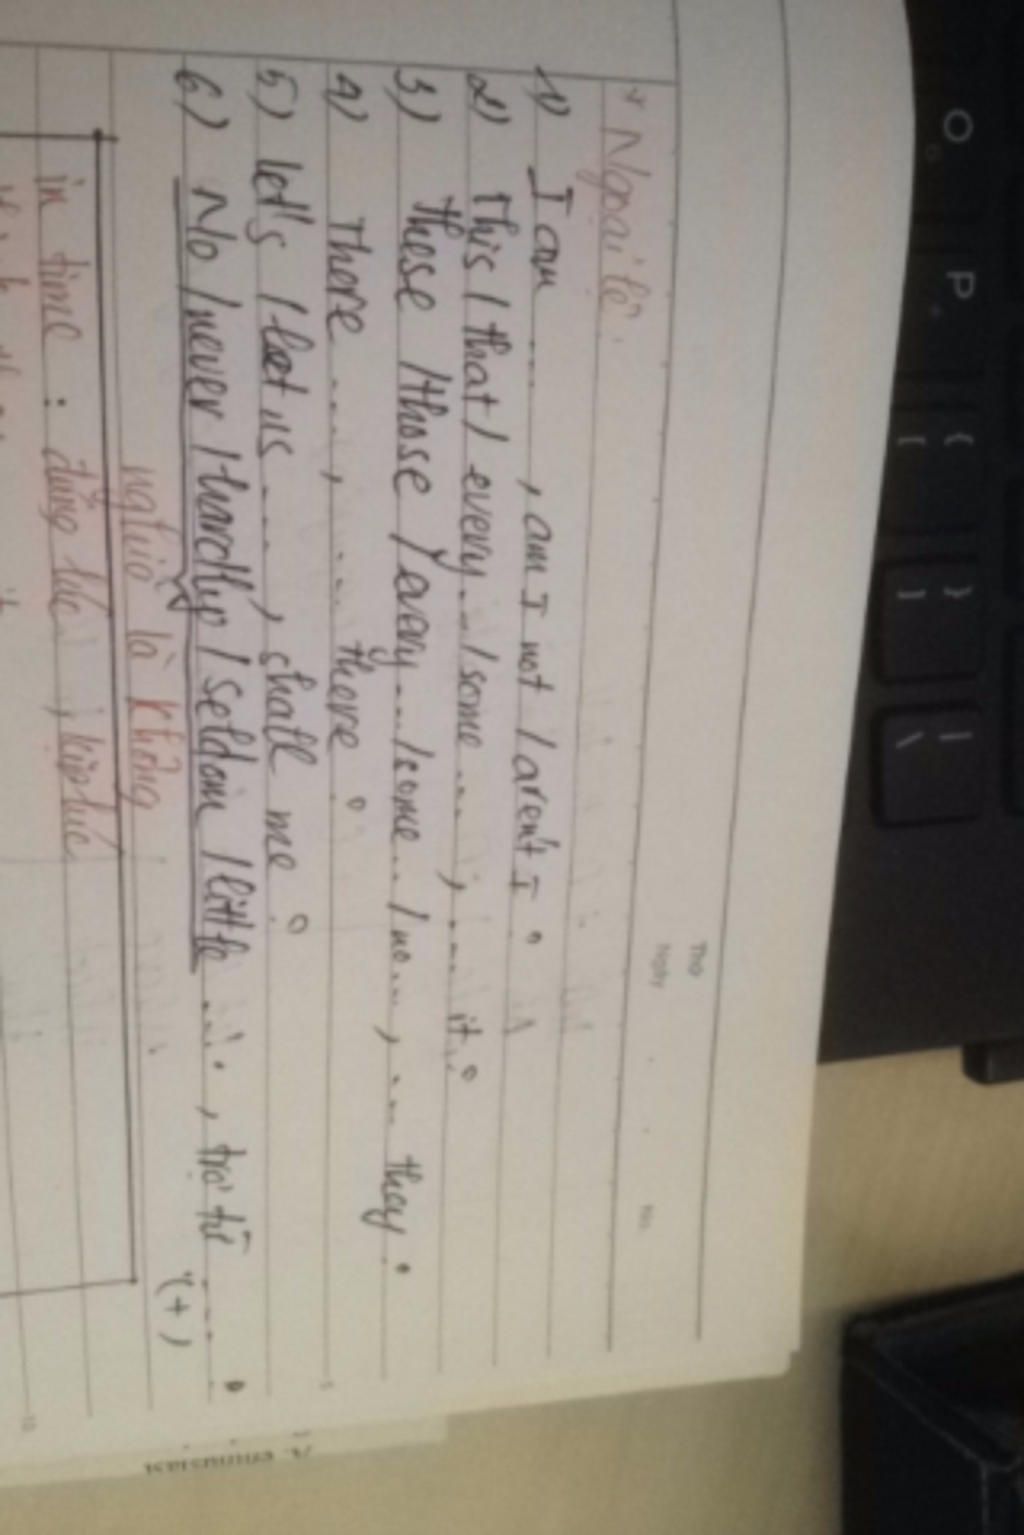 * Ngoại lệ:
1) I am ...., am I not / aren't I ?
2) This / that / every... / some ...., .... it ?
3) These / those / every... / some... / no...., .... they ?
4) There ...., .... there ?
5) let's / let us ...., shall we ?
6) No / never / hardly / seldom / little ...., trợ từ .... ?
(+)
nghĩa là không
in time : đúng lúc , kịp lúc
Thứ
Ngày
No.
O
P
{
[
}
]
|
\